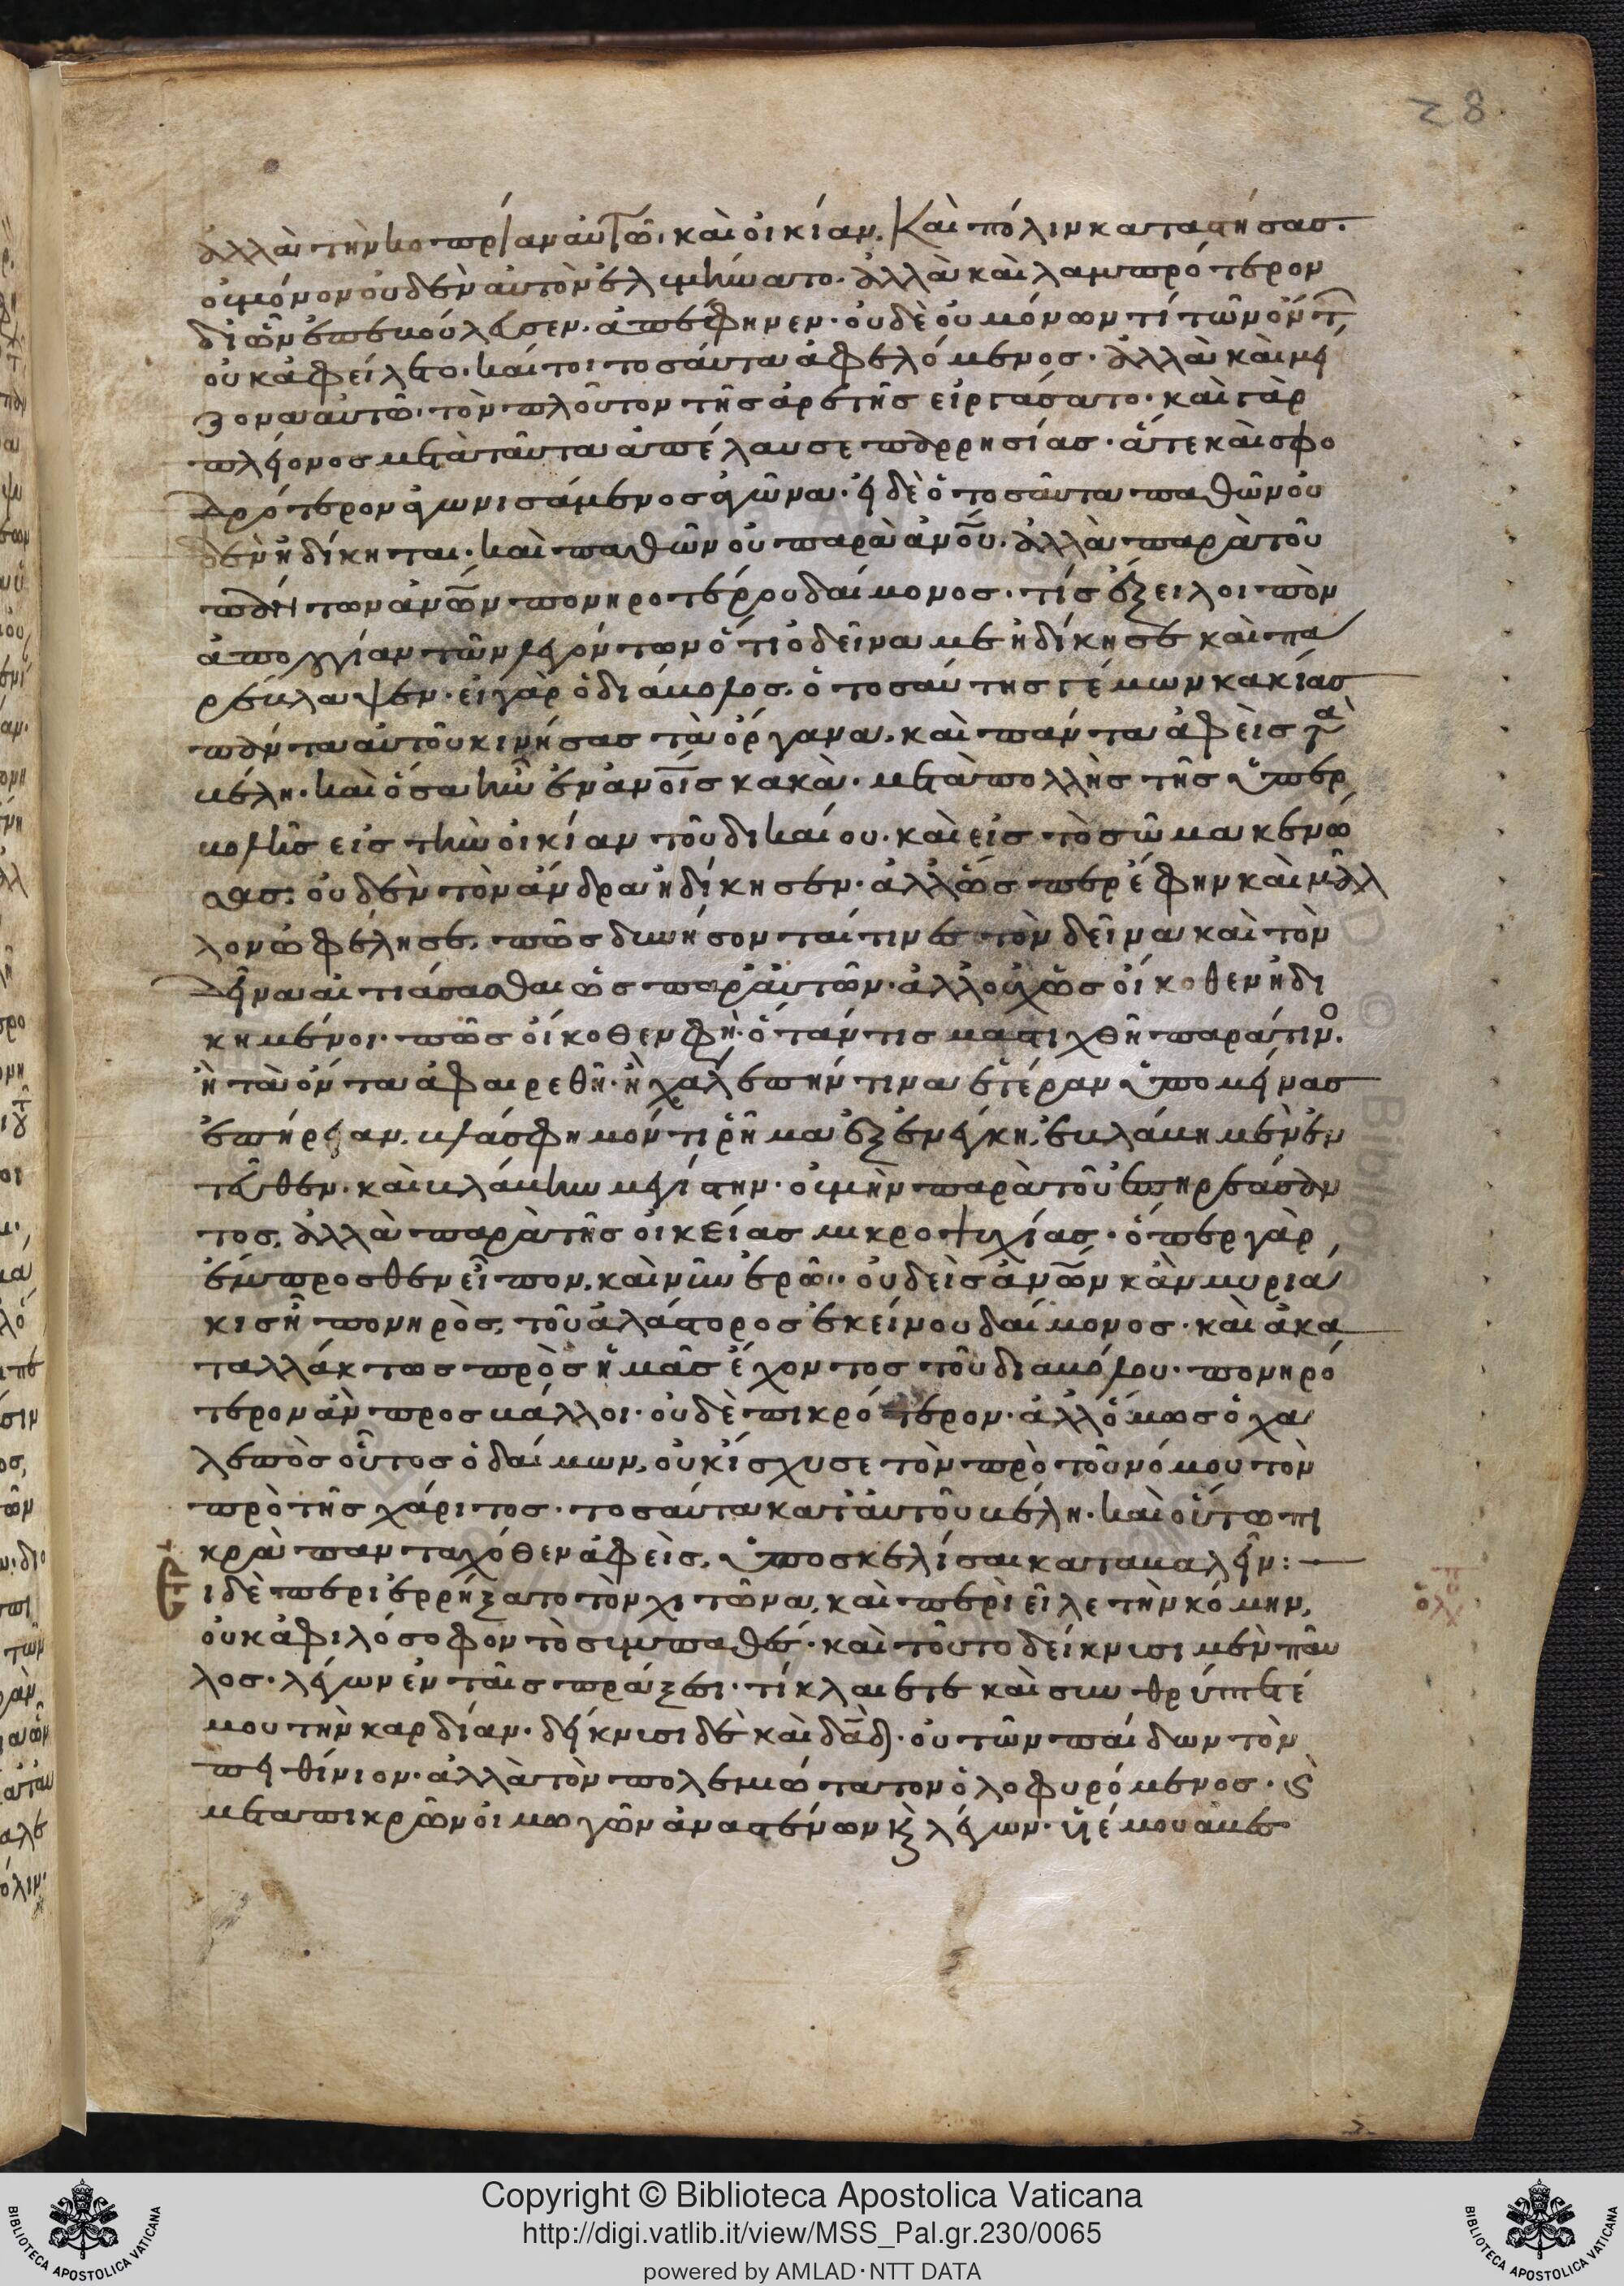 28
ἀλλὰ τὴν κοπρίαν αὐτῶ, καὶ οἰκίαν, καὶ πόλιν καταστήσας.
οὐ μόνον οὐδὲν αὐτὸν ἐλυμήνατο. ἀλλὰ καὶ λαμπρότερον
δι' ὧν ἐπεβούλευσεν. ἀπέφηνεν. οὐδὲ οὐ μόνον τί τῶν ὄντ
οὐκ ἀφείλετο. καίτοι τοσαῦτα ἀφελόμενος. ἀλλὰ καὶ μεί
ζονα αὐτῶ. τὸν πλοῦτον τῆς ἀρετῆς εἰργάσατο. καὶ γὰρ
πλείονος μετὰ ταῦτα ἀπέλαυσε παρρησίας. ἅτε καὶ σφο
δρότερον ἀγωνισάμενος ἀγῶνα. εἰ δὲ ὁ τοσαῦτα παθῶν οὐ
δὲν ἠδίκηται. καὶ παθῶν οὐ παρὰ ἀνου. ἀλλὰ παρὰ τοῦ
πάντων ἀνων πονηροτέρου δαίμονος. τίς ἕξει λοιπὸν
ἀπολογίαν τῶν λεγόντων ὅτι ὁ δεῖνα με ἠδίκησε καὶ πα
ρέβλαψεν. εἰ γὰρ ὁ διάβολος. ὁ τοσαύτης γέμων κακίας
πάντα αὐτοῦ κινήσας τὰ ὄργανα. καὶ πάντα ἀφεὶς τὰ
βέλη. καὶ ὅσα ἦν ἐν ἀνοις κακὰ. μετὰ πολλῆς τῆς ὑπερ
βολῆς εἰς τὴν οἰκίαν τοῦ δικαίου. καὶ εἰς τὸ σῶμα κενώ
σας· οὐδὲν τὸν ἄνδρα ἠδίκησεν. ἀλλ' ὥσπερ ἔφην καὶ μᾶλ
λον ὠφέλησε. πῶς δυνήσονται τινὲς τὸν δεῖνα καὶ τὸν
δεῖνα αἰτιάσασθαι ὡς παρ' αὐτῶν. ἀλλ' οὐχ ὡς οἴκοθεν ἠδι
κημένοι. πῶς οἴκοθεν φη. ὅταν τις μαστιχθῆ παρά τινο.
ἢ τὰ ὄντα ἀφαιρεθῆ. ἢ χαλεπήν τινα ἑτέραν ὑπομείνας
ἐπήρειαν. βλάσφημόν τι ῥῆμα ἐξενέγκη. ἐβλάβη μὲν ἐν
τεῦθεν. καὶ βλάβην μεγίστην. οὐ μὴν παρὰ τοῦ ἐπηρεάσαν
τος. ἀλλὰ παρὰ τῆς οἰκείας μικροψυχίας. ὅπερ γὰρ
ἔμπροσθεν εἶπον. καὶ νῦν ἐρῶ. οὐδεὶς ἀνων κἂν μυρια
κις ἦ πονηρὸς. τοῦ ἀλάστορος ἐκείνου δαίμονος. καὶ ἀκα
ταλλάκτως πρὸς ἡμᾶς ἔχοντος τοῦ διαβόλου. πονηρό
τερον ἂν προσβάλλοι. οὐδὲ πικρότερον. ἀλλ' ὅμως ὁ χα
λεπὸς οὗτος ὁ δαίμων. οὐκ ἴσχυσε τὸν πρὸ τοῦ νόμου τὸν
πρὸ τῆς χάριτος. τοσαῦτα κατ' αὐτοῦ βέλη. καὶ οὕτω πι
κρὰ πανταχόθεν ἀφεὶς. ὑποσκελίσαι καταβαλεῖν:
Ειδὲ περιερρήξατο τὸν χιτῶνα, καὶ περιεῖλε τὴν κόμην,
οὐκ ἀφιλόσοφον τὸ συμπαθές. καὶ τοῦτο δείκνυσι μὲν παῦ
λος. λέγων ἐν ταῖς πράξεσι. τί κλαίετε καὶ συνθρύπτετέ
μου τὴν καρδίαν. δείκνυσι δὲ καὶ δαδ. οὐ τῶν παίδων τὸν
πειθίνιον. ἀλλὰ τὸν πολεμιώτατον ὀλοφυρόμενος. καὶ
μετὰ πικρῶν οἰμωγῶν ἀναστένων καὶ λέγων. υἱέ μου ἀβε
Copyright © Biblioteca Apostolica Vaticana
http://digi.vatlib.it/view/MSS_Pal.gr.230/0065
powered by AMLAD·NTT DATA
BIBLIOTECA APOSTOLICA VATICANA
BIBLIOTECA APOSTOLICA VATICANA